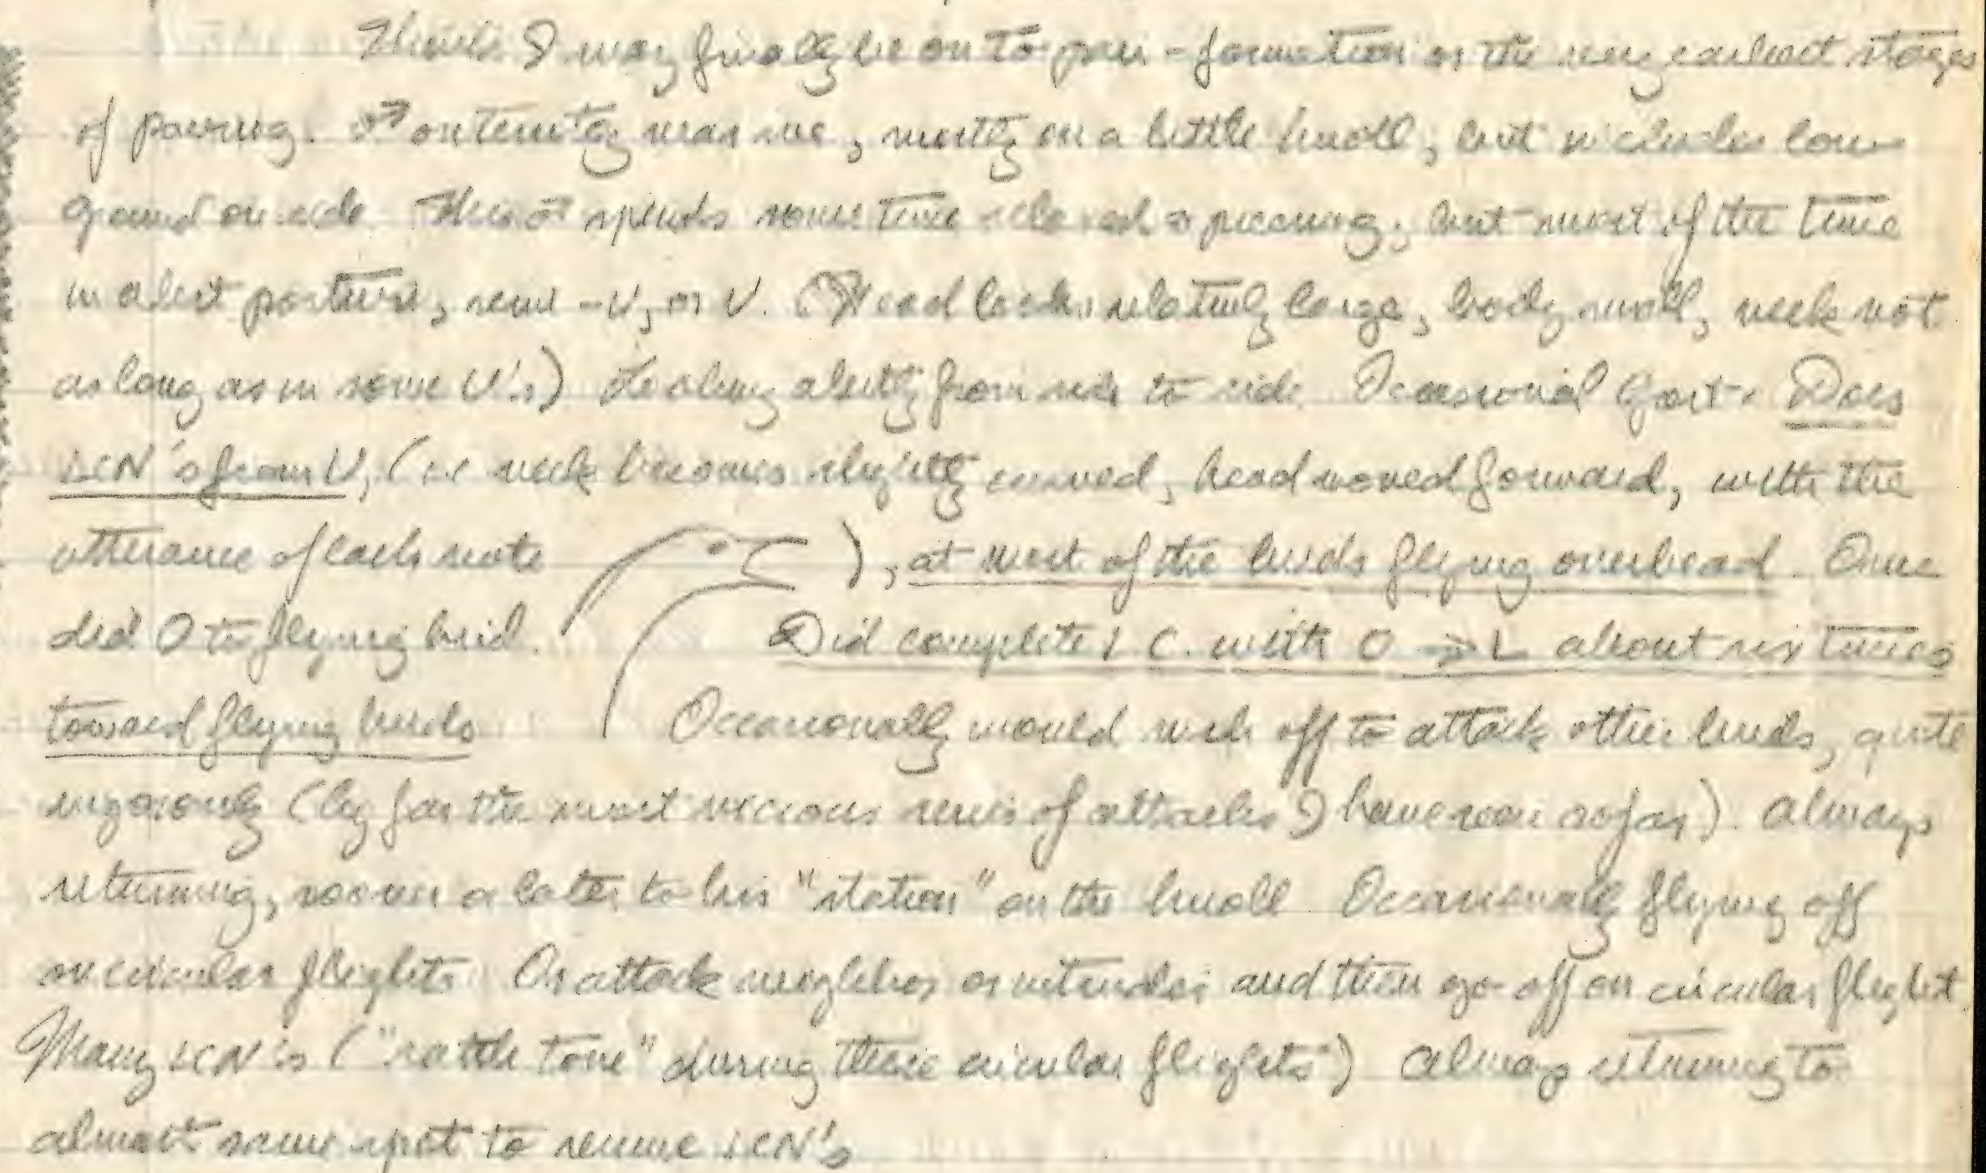 Think I may finally be on to pair-formation or the very earliest stages
of pairing. ♂ on territory near me, mostly on a little knoll, but includes low
ground on side This ♂ spends some time relaxed & preening, but most of the time
in alert posture, semi-U, or U. (Head looks relatively large, body small, neck not
as long as in some U's.) Looking alertly from side to side. Occasional Does
LCN's from U, (i.e. neck becomes slightly curved, head moved forward, with the
utterance of each note ), at most of the birds flying overhead. Once
did O to flying bird. Did complete LC. with O → L about six times
toward flying birds Occasionally would rush off to attack other birds, quite
vigorously (by far the most vicious series of attacks I have seen so far). Always
returning, sooner or later to his "station" on the knoll Occasionally flying off
in circular flights Or attack neighbor or intruder and then go off on circular flight
Many LCN's ("rattle tone" during these circular flights) Always returning to
almost same spot to resume LCN's